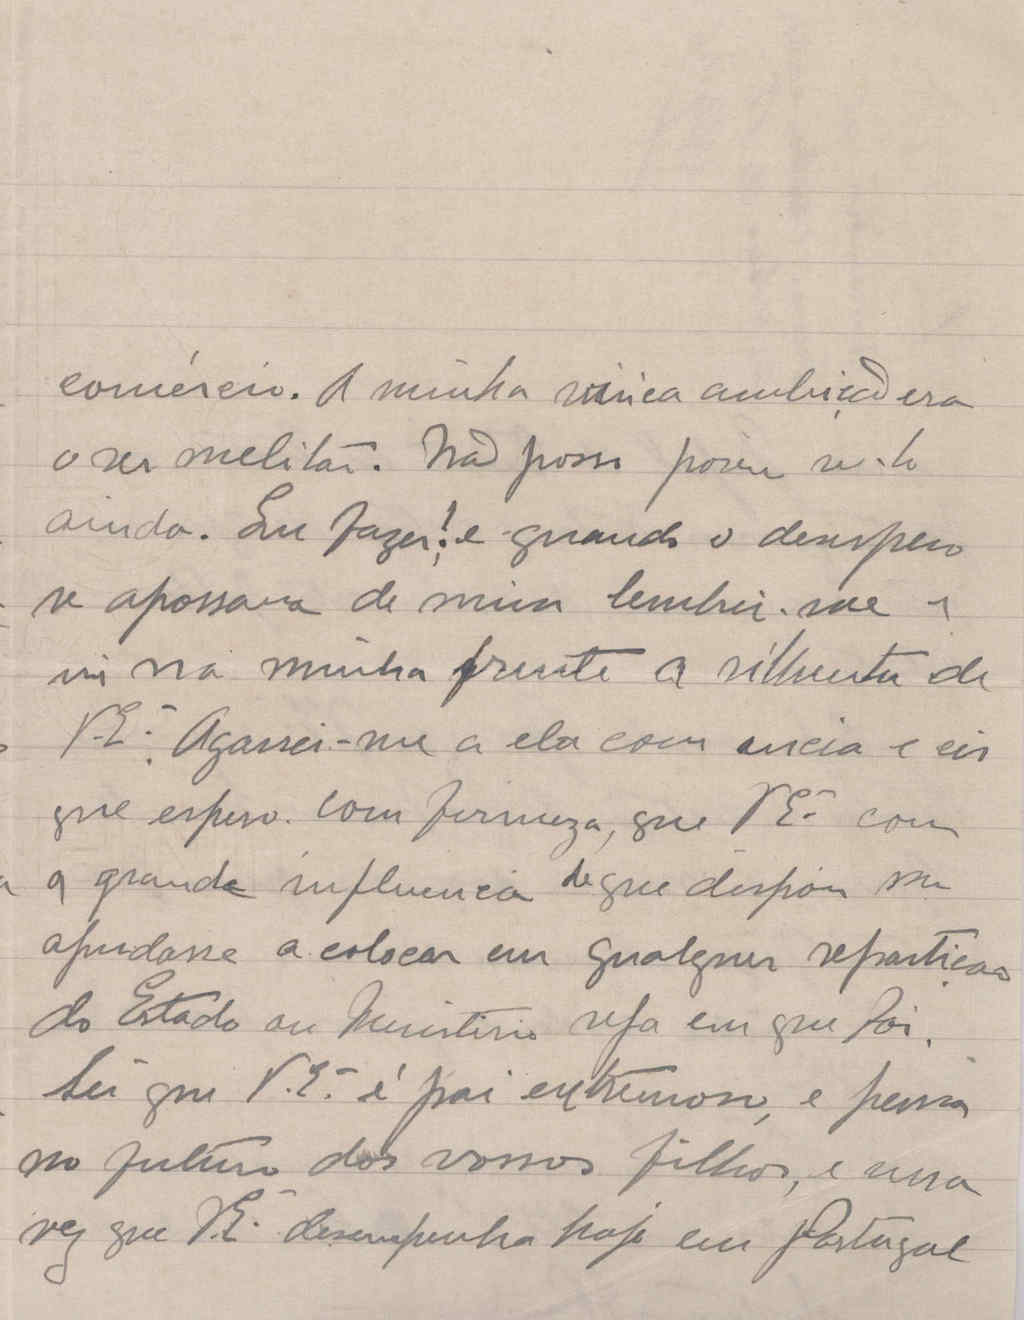 comércio. A minha única ambição era
o ser melitar. Não posso porém se-lo
ainda. Eu fazer! e quando o desespero
se apossava de mim lembrei-me e
vi na minha frente a silhueta de
V.Eª. Agarrei-me a ela com ancia e eis
que espero com firmeza, que V.Eª com
a grande influencia de que dispõe me
ajudasse a colocar em qualquer repartição
do Estado ou Ministério seja em que fôr.
Sei que V.Eª é pai extremoso, e pensa
no futuro dos vossos filhos, e uma
vez que V.Eª desempenha hoje em Portugal